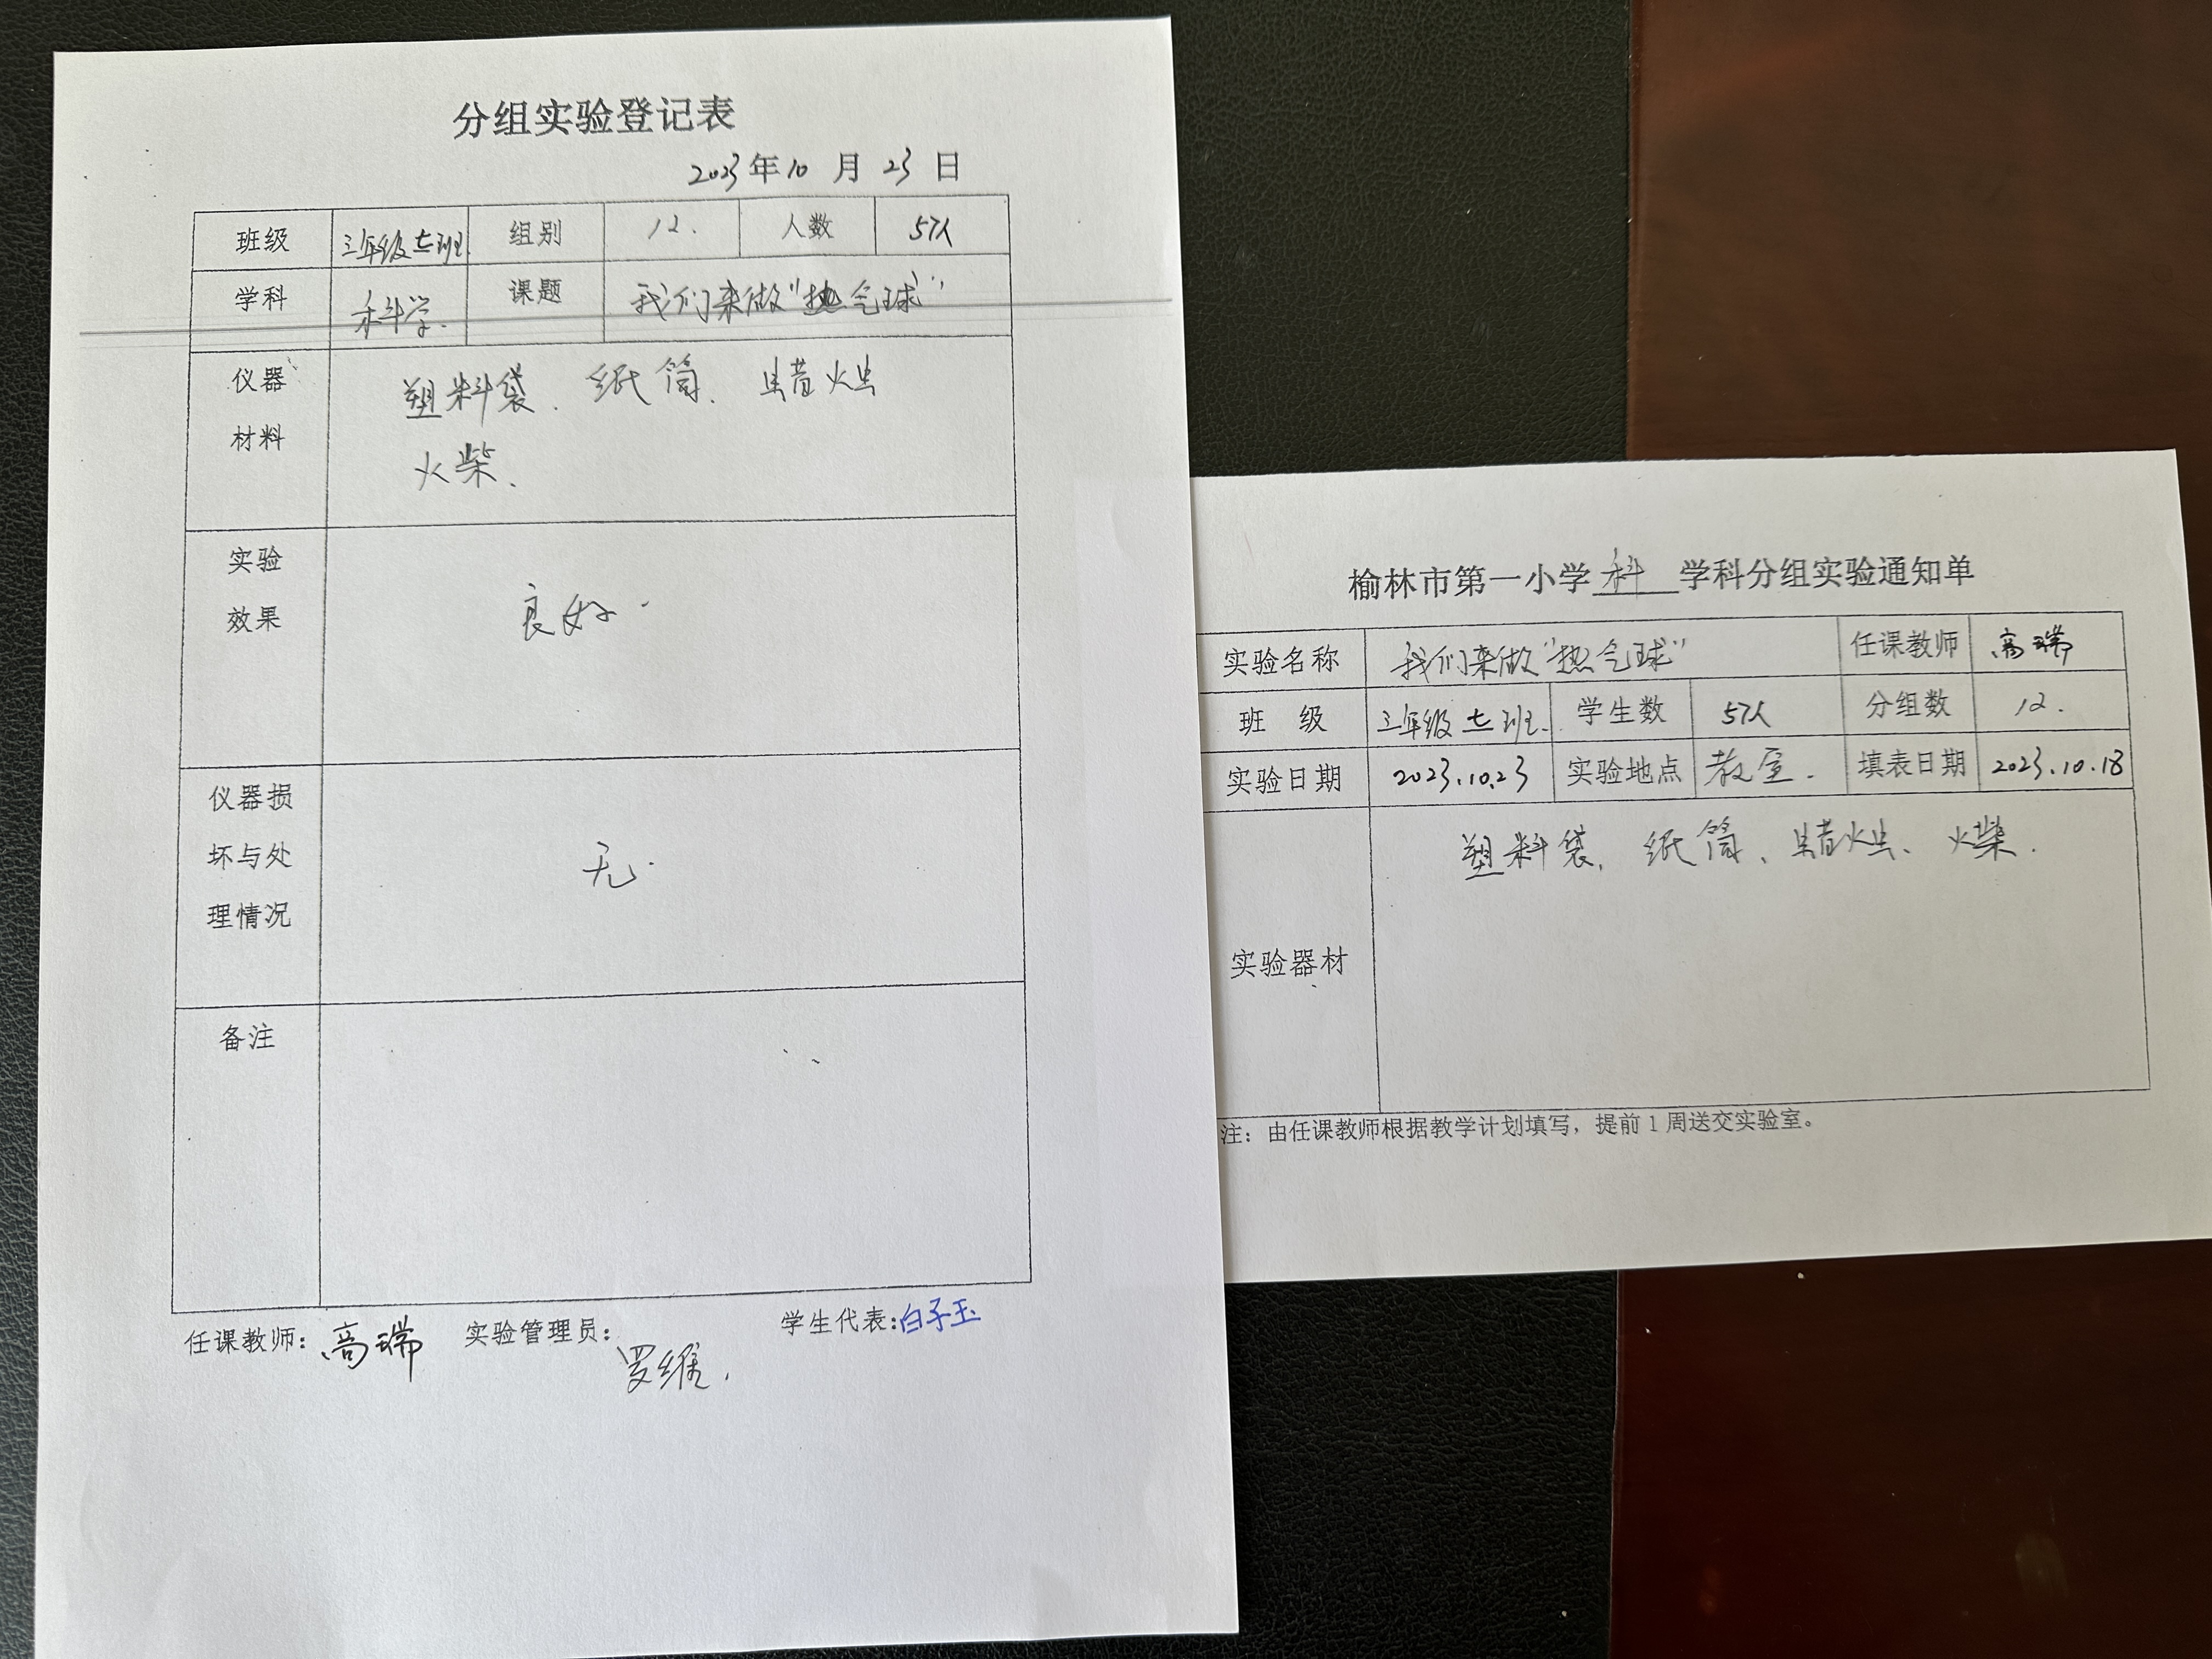 分组实验登记表
2023年10月23日
班级 三年级七班 组别 12. 人数 57人
学科 科学. 课题 我们来做“热气球”
仪器 塑料袋、纸筒、蜡烛
材料 火柴、
实验
效果 良好.
仪器损
坏与处 无.
理情况
备注
任课教师：高瑞 实验管理员：罗维. 学生代表：白子玉
榆林市第一小学科学科分组实验通知单
实验名称 我们来做“热气球” 任课教师 高瑞
班 级 三年级七班. 学生数 57人 分组数 12.
实验日期 2023.10.23 实验地点 教室. 填表日期 2023.10.18
塑料袋、纸筒、蜡烛、火柴.
实验器材
注：由任课教师根据教学计划填写，提前1周送交实验室。